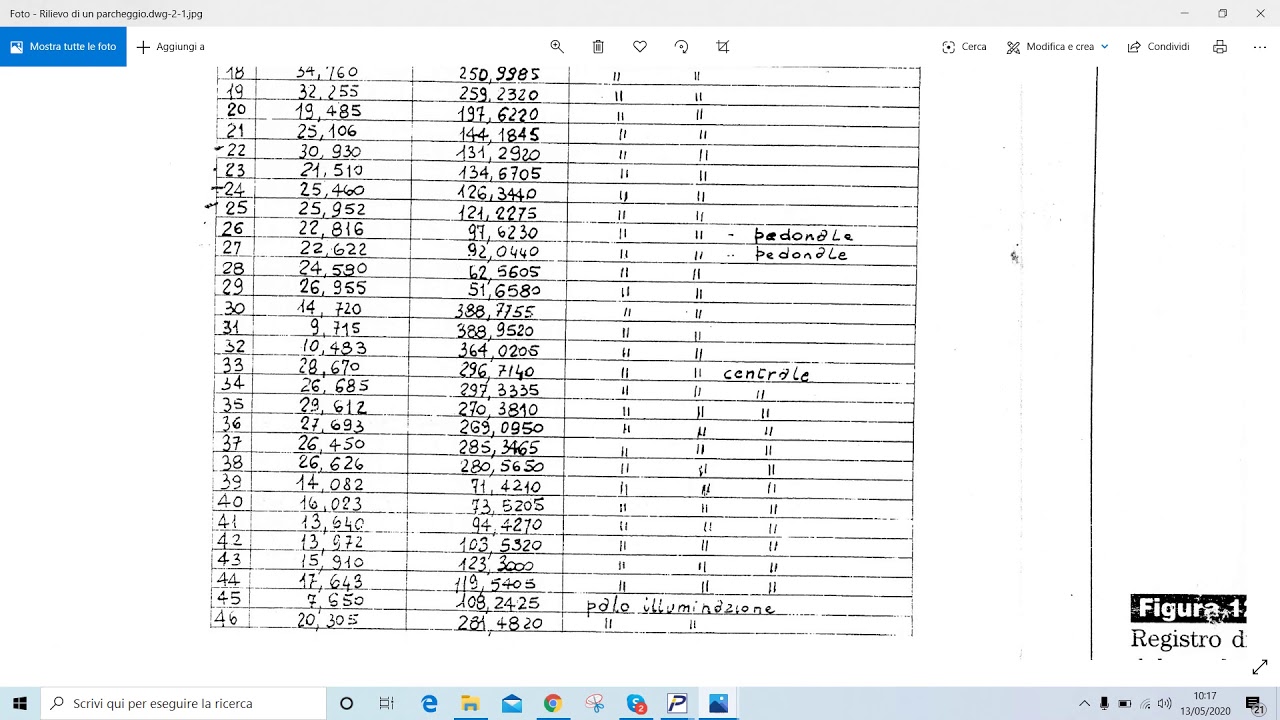 Foto - Rilievo di un parcheggio.dwg-2-1.jpg
Mostra tutte le foto Aggiungi a Cerca Modifica e crea Condividi
18 34,760 250,9985 " "
19 32,255 259,2320 " "
20 19,485 197,6220 " "
21 25,106 144,1845 " "
22 30,930 131,2920 " "
23 21,510 134,6705 " "
24 25,460 126,3440 " "
25 25,952 121,2275 " "
26 22,816 97,6230 " " - pedonale
27 22,622 92,0440 " " - pedonale
28 24,590 62,5605 " "
29 26,955 51,6580 " "
30 14,720 388,7755 " "
31 9,715 388,9520 " "
32 10,483 364,0205 " "
33 28,670 296,7140 " " centrale
34 26,685 297,3335 " " "
35 29,612 270,3810 " " "
36 27,693 269,0950 " " "
37 26,450 285,3465 " " "
38 26,626 280,5650 " " "
39 14,082 71,4210 " " "
40 16,023 73,5205 " " "
41 13,640 94,4270 " " "
42 13,972 103,5320 " " "
43 15,910 123,3000 " " "
44 17,643 119,5405 " " "
45 7,650 108,2425 palo illuminazione
46 20,305 281,4820 " "
Figura 1
Registro d
Scrivi qui per eseguire la ricerca
10:17
13/05/2020
21